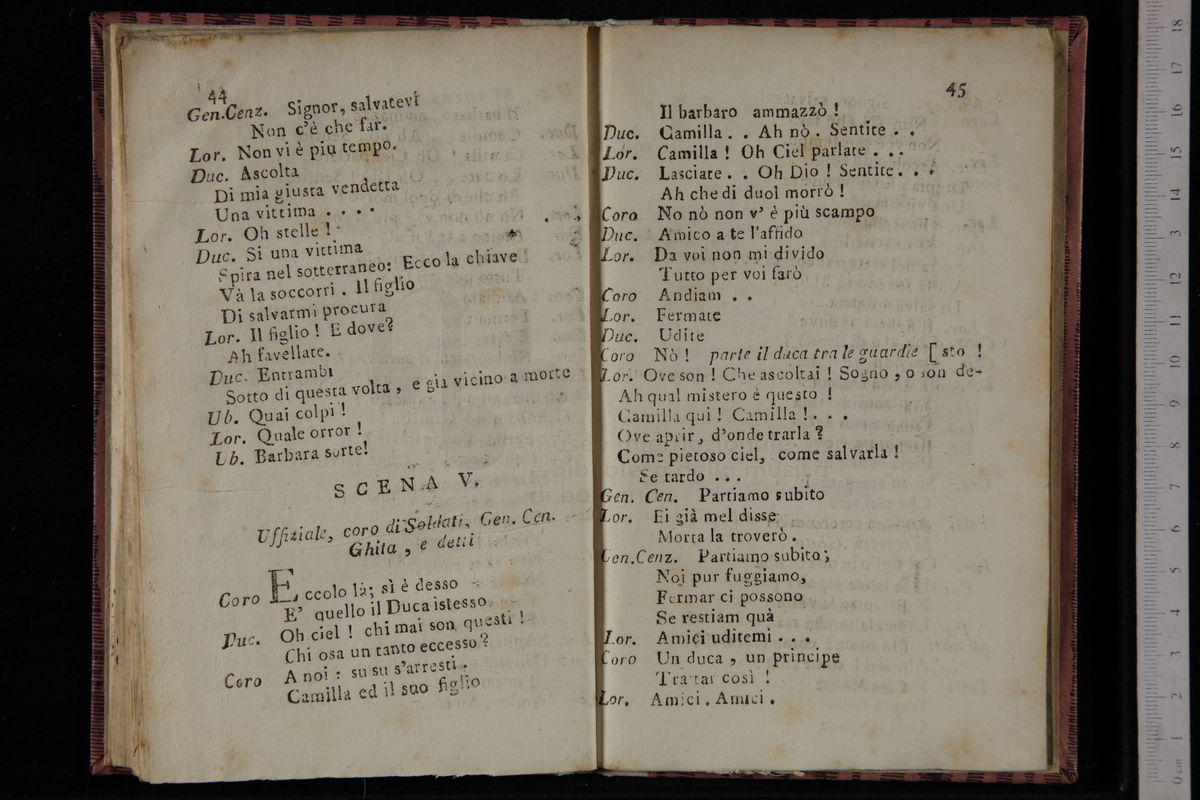 44
Gen.Cenz. Signor, salvatevi
Non c'è che far.
Lor. Non vi è più tempo.
Duc. Ascolta
Di mia giusta vendetta
Una vittima . . . .
Lor. Oh stelle !
Duc. Si una vittima
Spira nel sotterraneo: Ecco la chiave
Và la soccorri . Il figlio
Di salvarmi procura
Lor. Il figlio ! E dove?
Ah favellate.
Duc. Entrambi
Sotto di questa volta , e già vicino a morte
Ub. Quai colpi !
Lor. Quale orror !
Ub. Barbara sorte!
SCENA V.
Uffiziale, coro di Soldati, Gen. Cen.
Ghita , e detti
Coro Eccolo là; sì è desso
E' quello il Duca istesso
Duc. Oh ciel ! chi mai son questi !
Chi osa un tanto eccesso?
Coro A noi : su su s'arresti .
Camilla ed il suo figlio
45
Il barbaro ammazzò !
Duc. Camilla . . Ah nò . Sentite . .
Lor. Camilla ! Oh Ciel parlate . . .
Duc. Lasciate . . Oh Dio ! Sentite . . .
Ah che di duol morrò !
Coro No nò non v' è più scampo
Duc. Amico a te l'affido
Lor. Da voi non mi divido
Tutto per voi farò
Coro Andiam . .
Lor. Fermate
Duc. Udite
Coro Nò ! parte il duca tra le guardie [ sto !
Lor. Ove son ! Che ascoltai ! Sogno , o son de-
Ah qual mistero è questo !
Camilla qui ! Camilla ! . . .
Ove aprir, d'onde trarla ?
Come pietoso ciel, come salvarla !
Se tardo . . .
Gen. Cen. Partiamo subito
Lor. Ei già mel disse
Morta la troverò .
Gen.Cenz. Partiamo subito;
Noi pur fuggiamo,
Fermar ci possono
Se restiam quà
Lor. Amici uditemi . . .
Coro Un duca , un principe
Trattar così !
Lor. Amici . Amici .